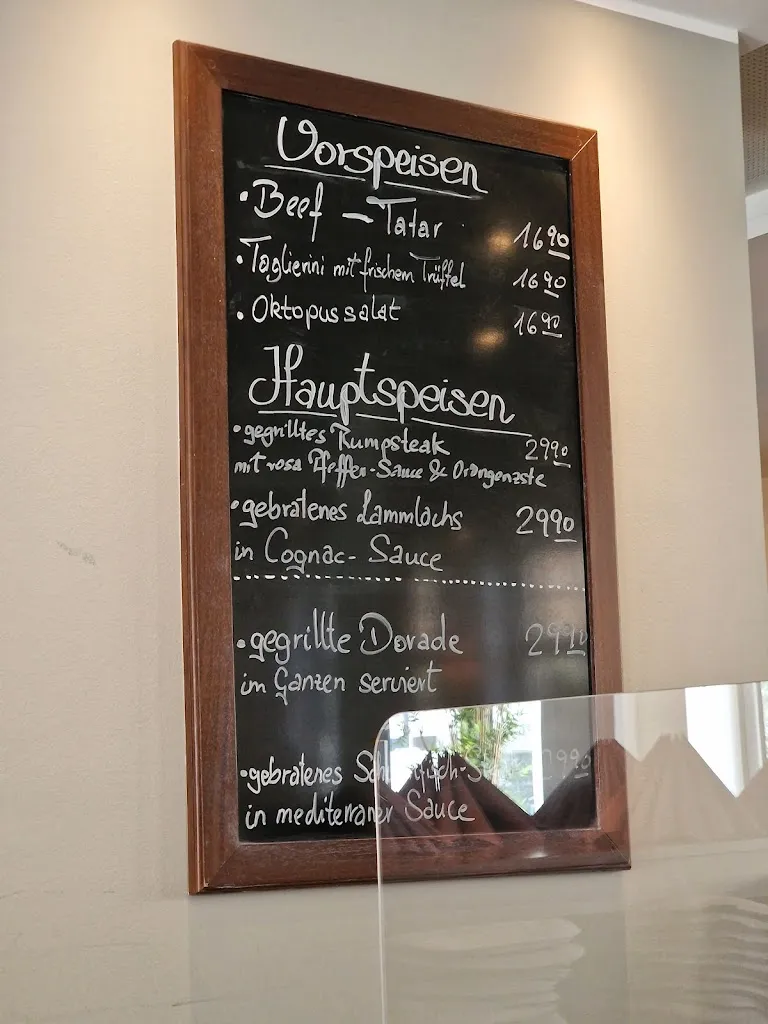 Vorspeisen
• Beef - Tatar 16 90
• Taglierini mit frischem Trüffel 16 90
• Oktopussalat 16 90
Hauptspeisen
• gegrilltes Rumpsteak 29 90
mit rosa Pfeffer-Sauce & Orangenzste
• gebratenes Lammlachs 29 90
in Cognac- Sauce
• gegrillte Dorade 29 90
im Ganzen serviert
• gebratenes 29 90
in mediterraner Sauce